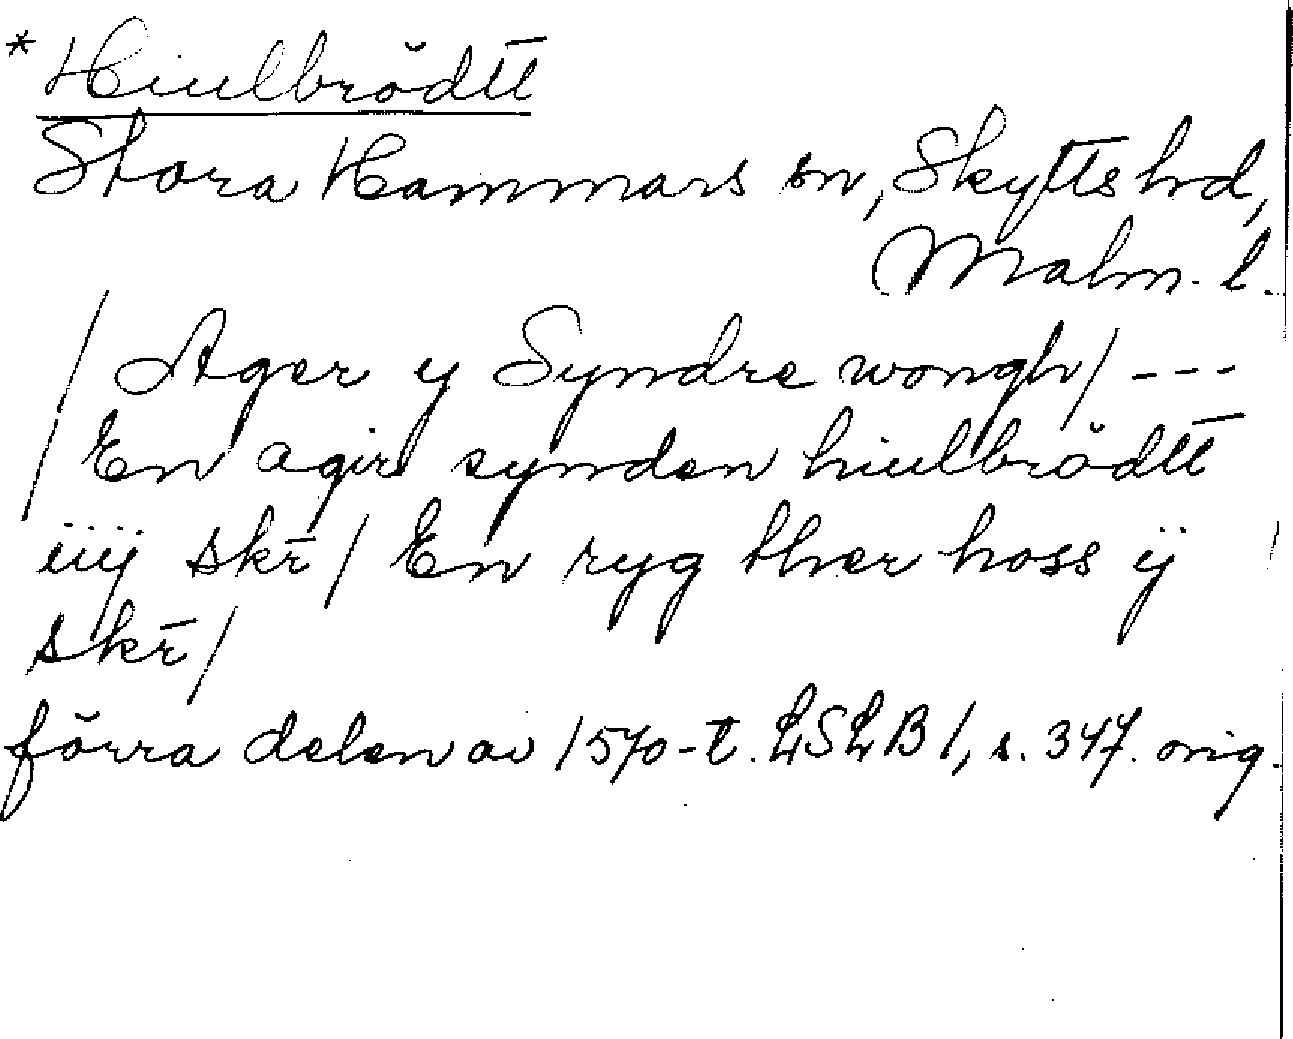 * Hiulbrödtt
Stora Hammars sn, Skytts hd,
Malm. l.
/ Ager y Syndre wongh / ---
/ En agir synden hiulbrödtt
iiij skr̄ / En ryg ther hoss ij
skr̄ /
förra delen av 1570-t. LSLB 1, s. 347. orig.